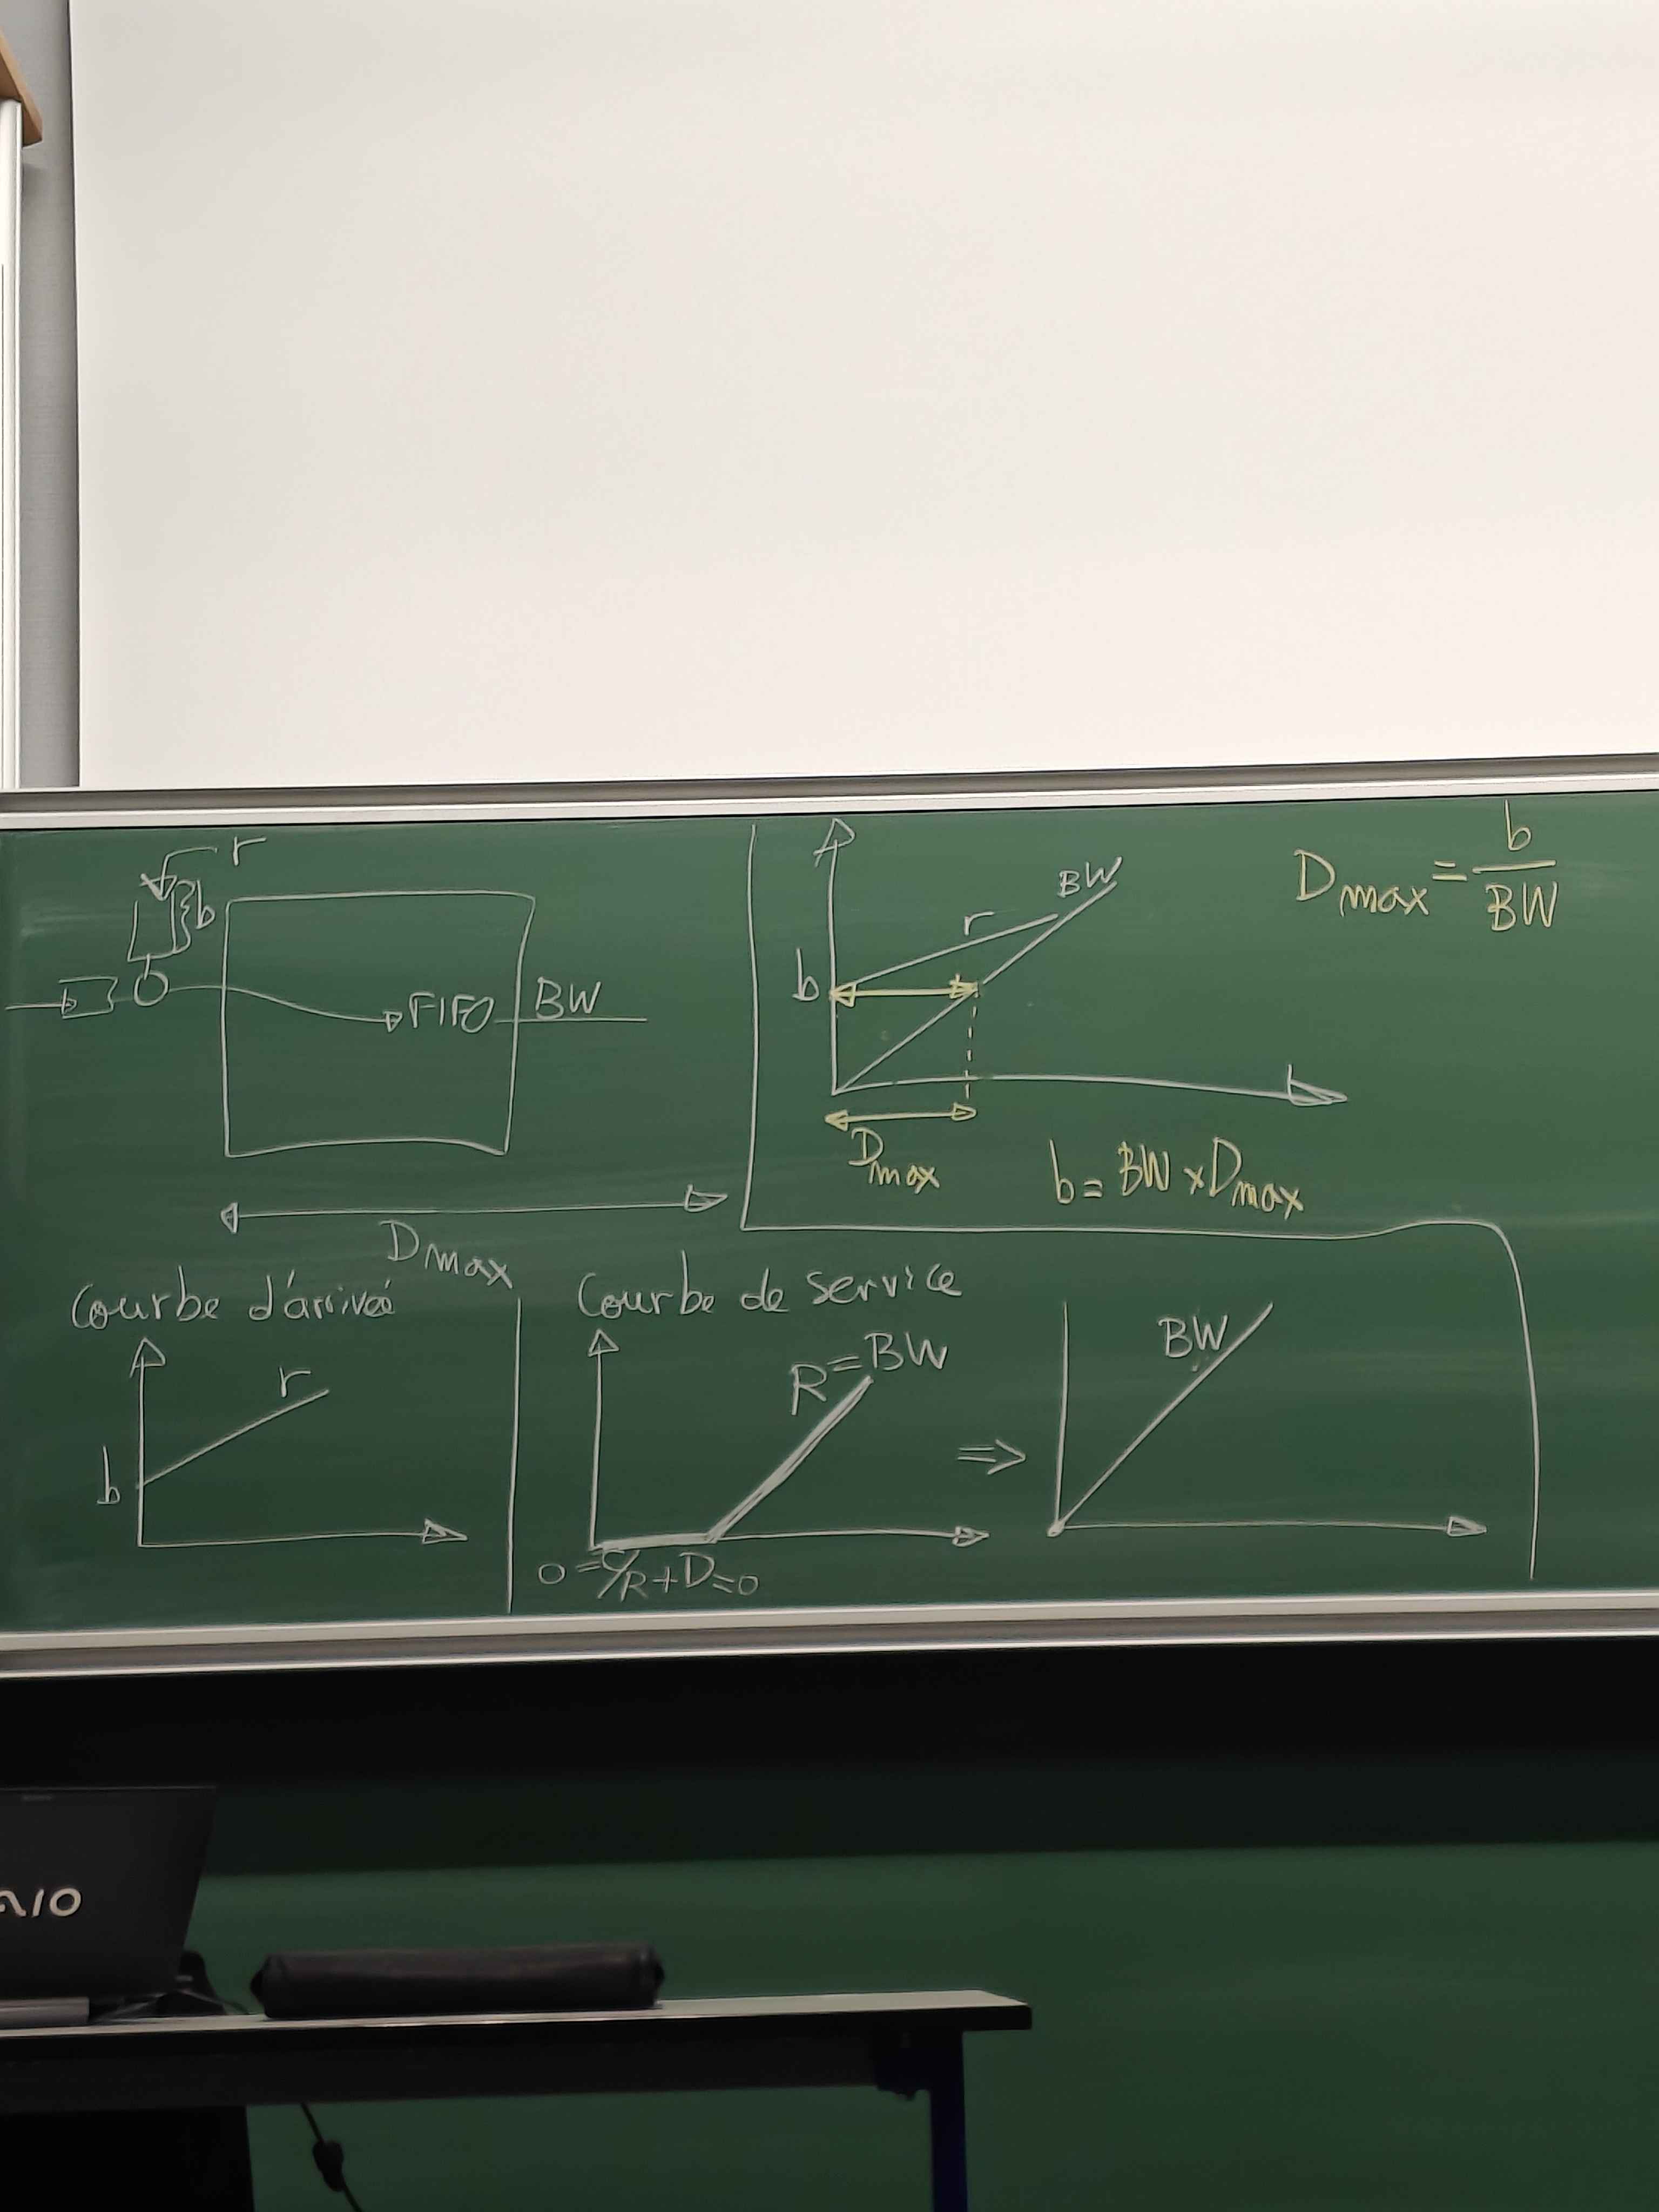 r
b
FIFO
BW
Dmax
BW
r
b
Dmax
b = BW x Dmax
Dmax = b/BW
Courbe d'arrivée
r
b
Courbe de service
R = BW
0 = C/R + D = 0
⇒
BW
AIO